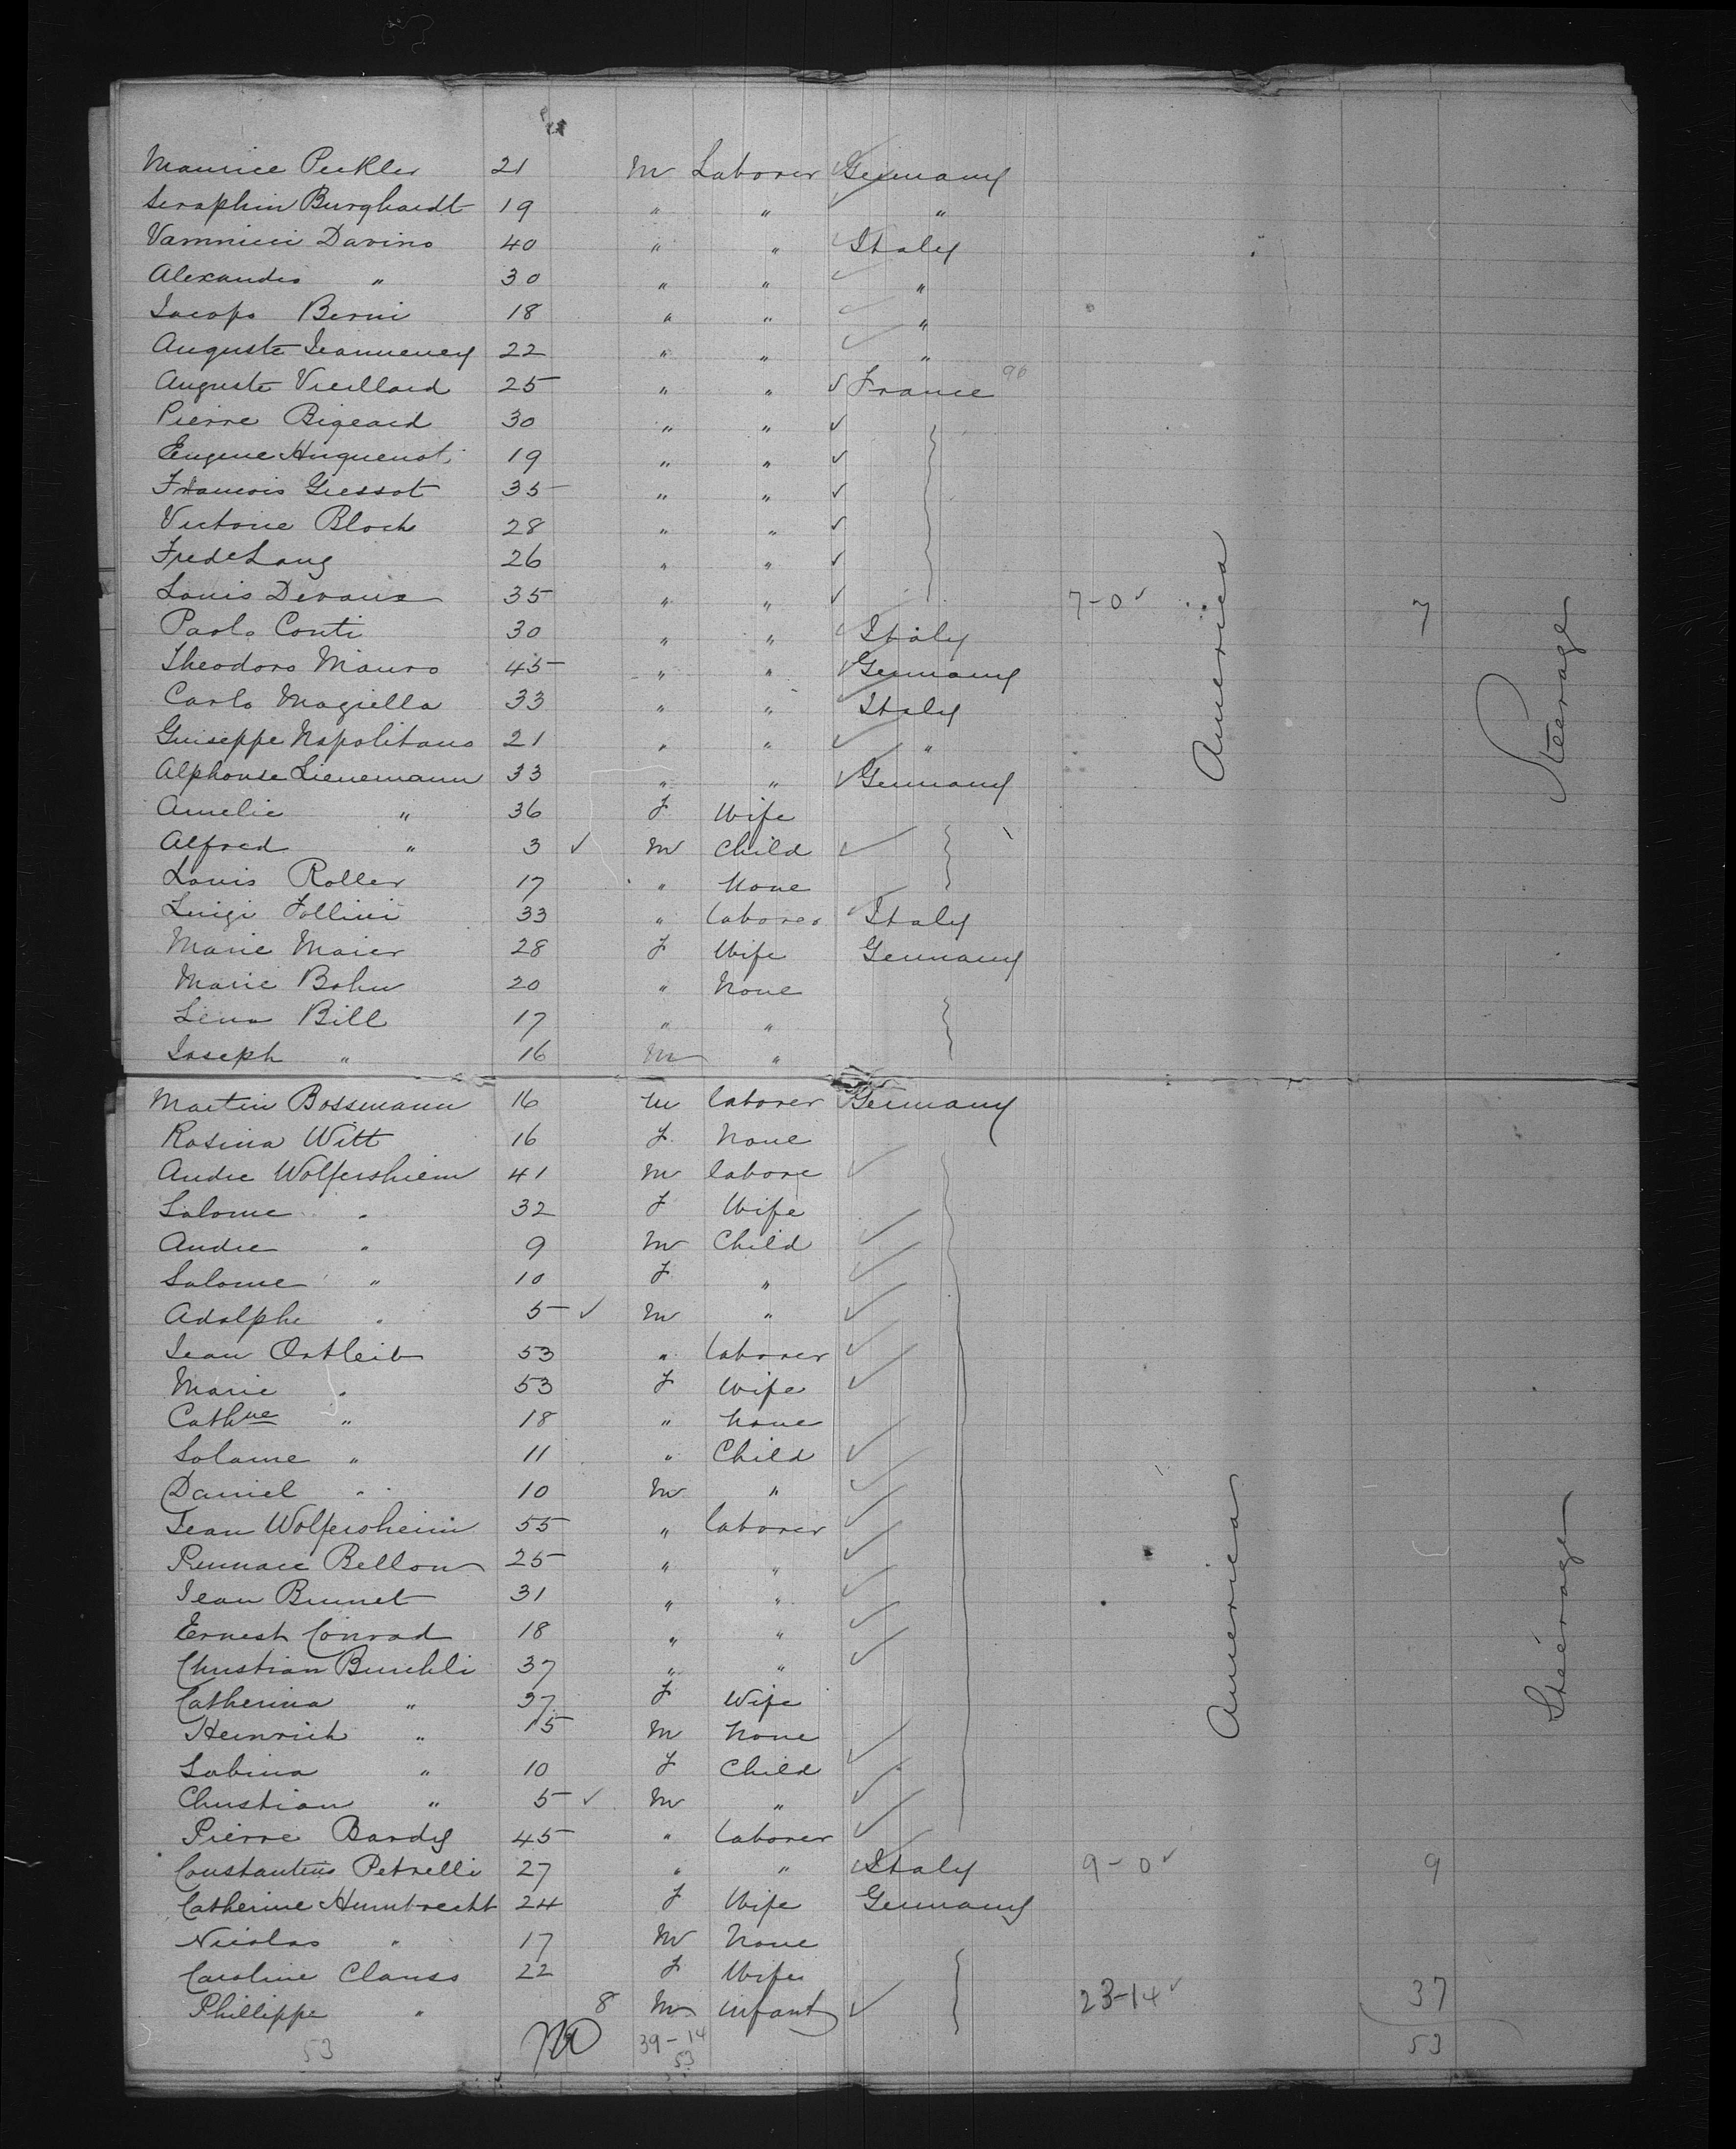 Maurice Peckler 21 M Laborer Germany
Seraphin Burghardt 19 " " "
Davino 40 " " Italy
Alexandro " 30 " " "
Iacopo Berni 18 " " "
Auguste Jeanneney 22 " " "
Auguste Vieillard 25 " " France 96
Pierre Bigeard 30 " "
Eugene Huguenot 19 " "
Francois Gressot 35 " "
Victorie Bloch 28 " "
Fred Lang 26 " "
Louis Devaux 35 " " 7-0 7
Paolo Conti 30 " " Italy
Theodoro Mauro 45 " " Germany
Carlo Magiella 33 " " Italy
Guiseppe Napolitano 21 " " "
Alphonse Lienemann 33 " " Germany
Amelie " 36 F Wife
Alfred " 3 M Child
Louis Roller 17 " None
Luigi Follini 33 " laborer Italy
Marie Maier 28 F Wife Germany
Marie Bohn 20 " None
Lena Bill 17 " "
Joseph " 16 M "
America
Steerage
Martin Bossmann 16 M laborer Germany
Rosina Witt 16 F None
Andre Wolfershiem 41 M labore
Salome " 32 F Wife
Andre " 9 M Child
Salome " 10 F "
Adolphe " 5 M "
Jean Ostleib 53 " laborer
Marie " 53 F Wife
Cathne " 18 " None
Solome " 11 " Child
Daniel " 10 M "
Jean Wolfersheim 55 " laborer
Bellow 25 " "
Jean Brunet 31 " "
Ernest Conrad 18 " "
Christian Buechli 37 " "
Catherina " 37 F Wife
Heinrich " 15 M None
Sabina " 10 F Child
Christian " 5 M "
Pierre Bardy 45 " laborer
Constantino Petrelli 27 " " Italy 9-0 9
Catherine Humbrecht 24 F Wife Germany
Nicolas " 17 M None
Caroline Clauss 22 F Wife
Phillippe " 8 M infant 23-14 37
53 39-14 53
53
America
Steerage